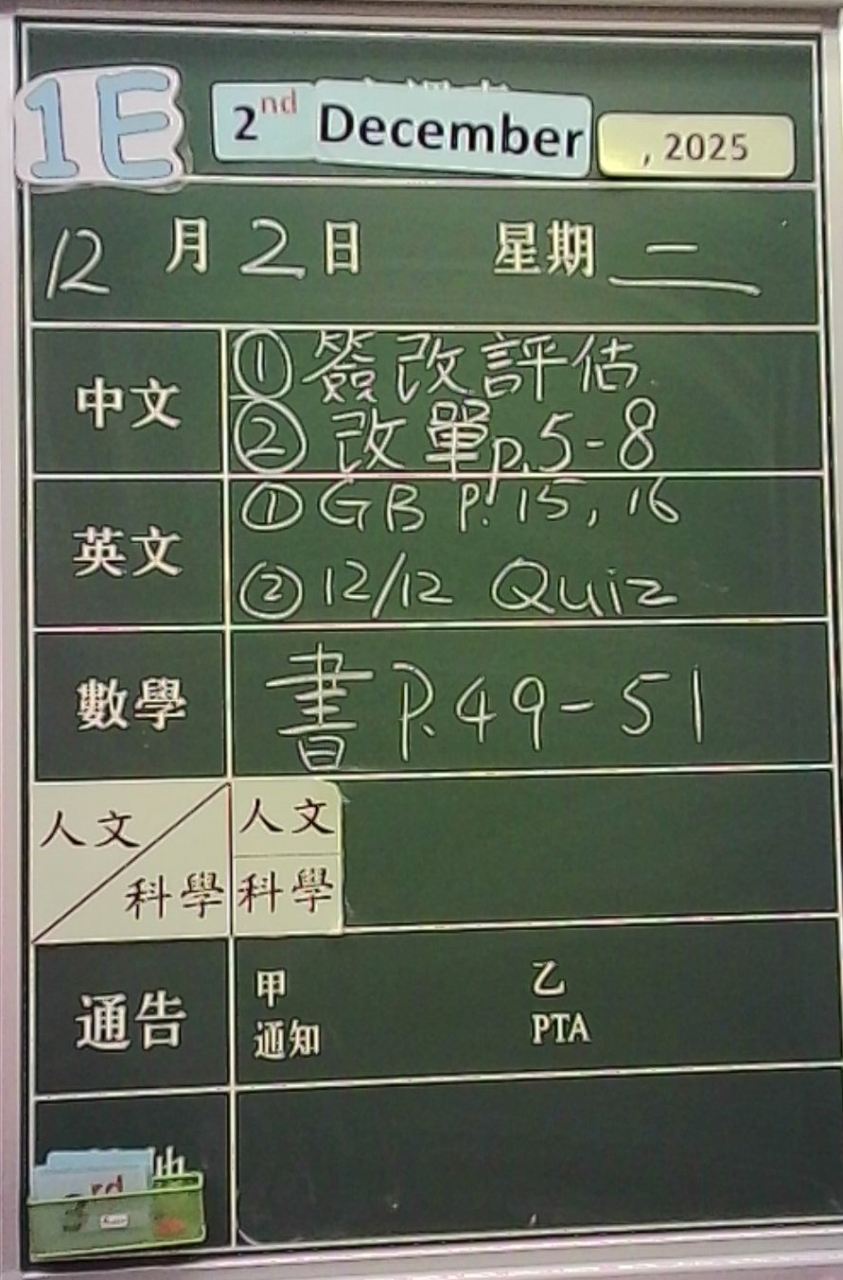 1E 2nd December , 2025
12 月 2 日 星期 二
中文 ① 簽改評估
② 改單p.5-8
英文 ① GB P.15, 16
② 12/12 Quiz
數學 書 P.49-51
人文 人文
科學 科學
通告 甲 乙
通知 PTA
3rd